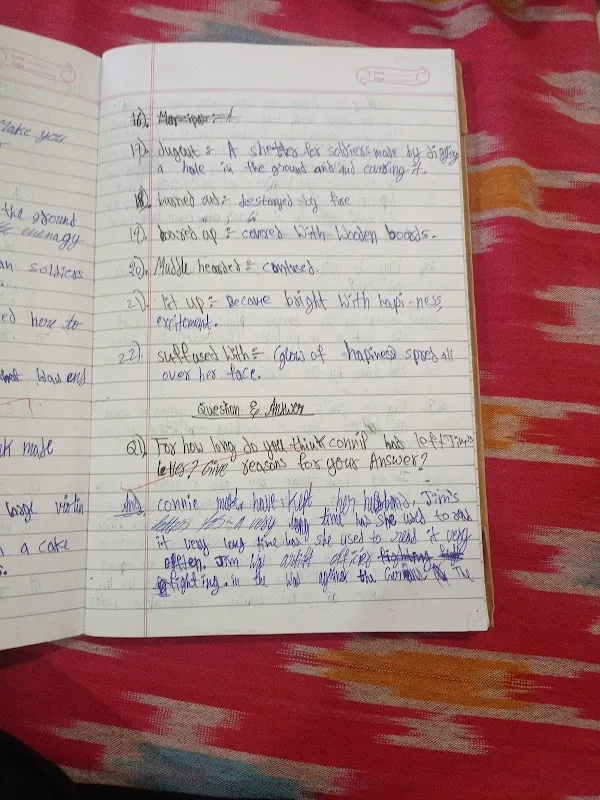 Make you
the ground
enemy
soldiers
ed here to
was end
made
large
a cake
Date
Page
Date
Page
16).
17). dugout := A shelter for soldiers made by digging
a hole in the ground and and covering it.
18. burned out:= destoryed by fire
19). boared up := covered with wooden boards.
20). Muddle hearded := confused.
21). lit up := Became bright with hapi-ness,
excitement.
22). suffused with := (glow of hapiness) spred all
over her face.
Question & Answer
Q1). For how long do you think connie has left Jim's
letter? Give reason for your Answer?
Ans connie must have kept her husbans, Jim's
letter for a very long time has she used to read
it very long time has she used to read it very
often. Jim was
fighting in the war against the The